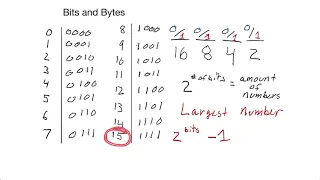 Bits and Bytes
0 0000 8 1000
1 0001 9 1001
2 0010 10 1010
3 0011 11 1011
4 0100 12 1100
5 0101 13 1101
6 0110 14 1110
7 0111 15 1111
0/1 0/1 0/1 0/1
16 8 4 2
2^# of bits = amount of numbers
Largest number
2^bits -1